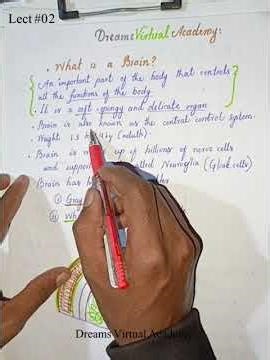 Lect #02
Dreams Virtual Academy:
• What is a Brain?
An important part of the body that controls
all the functions of the body.
• It is a soft, spongy and delicate organ
• Brain is also known as the central control system.
• Weight 1.5 (adult).
• Brain is up of billions of nerve cells
and called Neuroglia (Glial cells)
Brain has
Dreams Virtual Academy